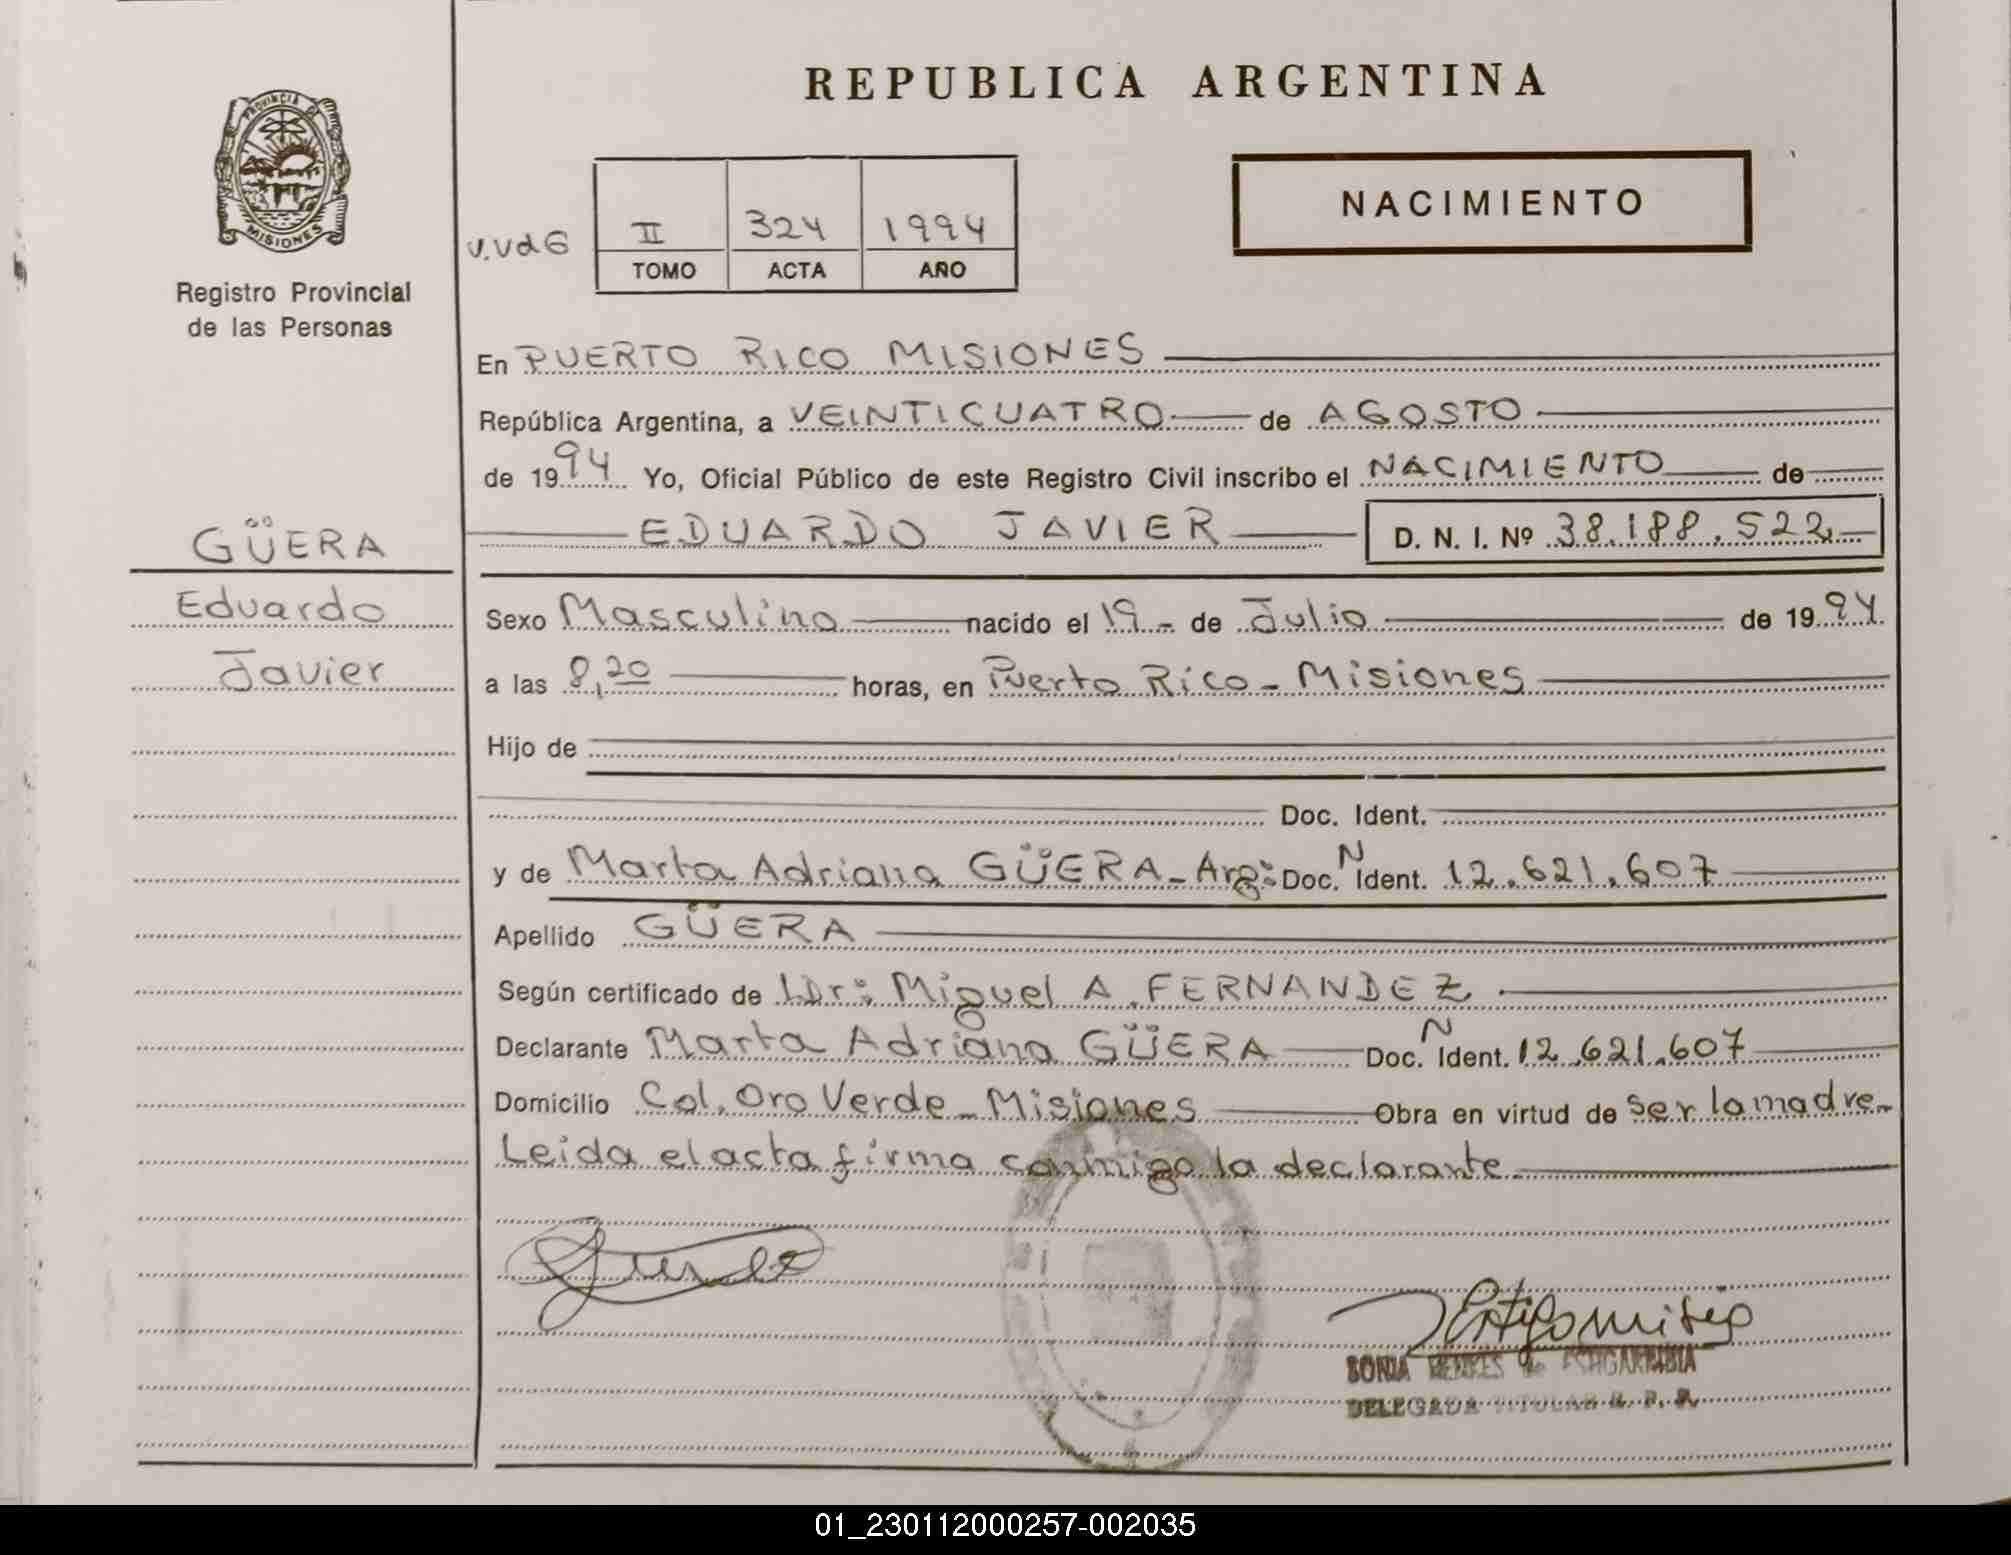 REPUBLICA ARGENTINA
PROVINCIA DE
MISIONES
Registro Provincial
de las Personas
V.VdG
II 324 1994
TOMO ACTA AÑO
NACIMIENTO
En PUERTO RICO MISIONES
República Argentina, a VEINTICUATRO de AGOSTO
de 1994 Yo, Oficial Público de este Registro Civil inscribo el NACIMIENTO de
EDUARDO JAVIER D. N. I. Nº 38.188.522
GÜERA
Eduardo
Javier
Sexo Masculino nacido el 19 - de Julio de 1994
a las 8,20 horas, en Puerto Rico - Misiones
Hijo de
Doc. Ident.
y de Marta Adriana GÜERA - Arg: Doc. N Ident. 12.621.607
Apellido GÜERA
Según certificado de Dr: Miguel A. FERNANDEZ
Declarante Marta Adriana GÜERA Doc. N Ident. 12.621.607
Domicilio Col. Oro Verde - Misiones Obra en virtud de ser la madre-
Leida el acta firma conmigo la declarante
SONIA de
DELEGADA TITULAR R. P. P.
01_230112000257-002035